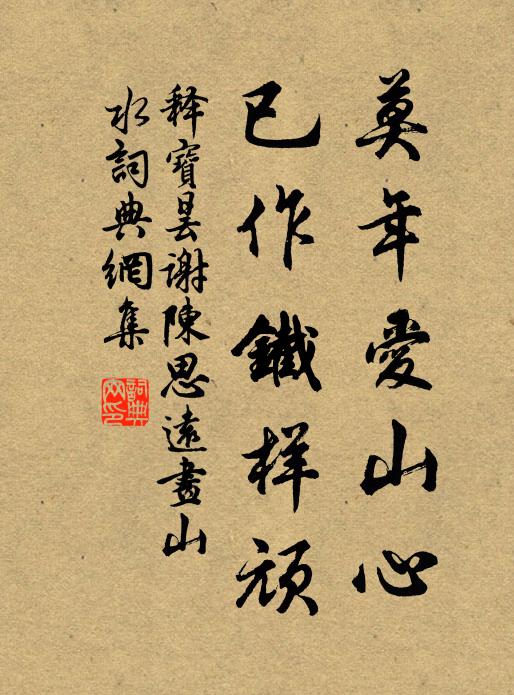 莫年愛山心
已作鐵样頑
释寶昙谢陳思遠畫山
水詞典網集
詞典
网印